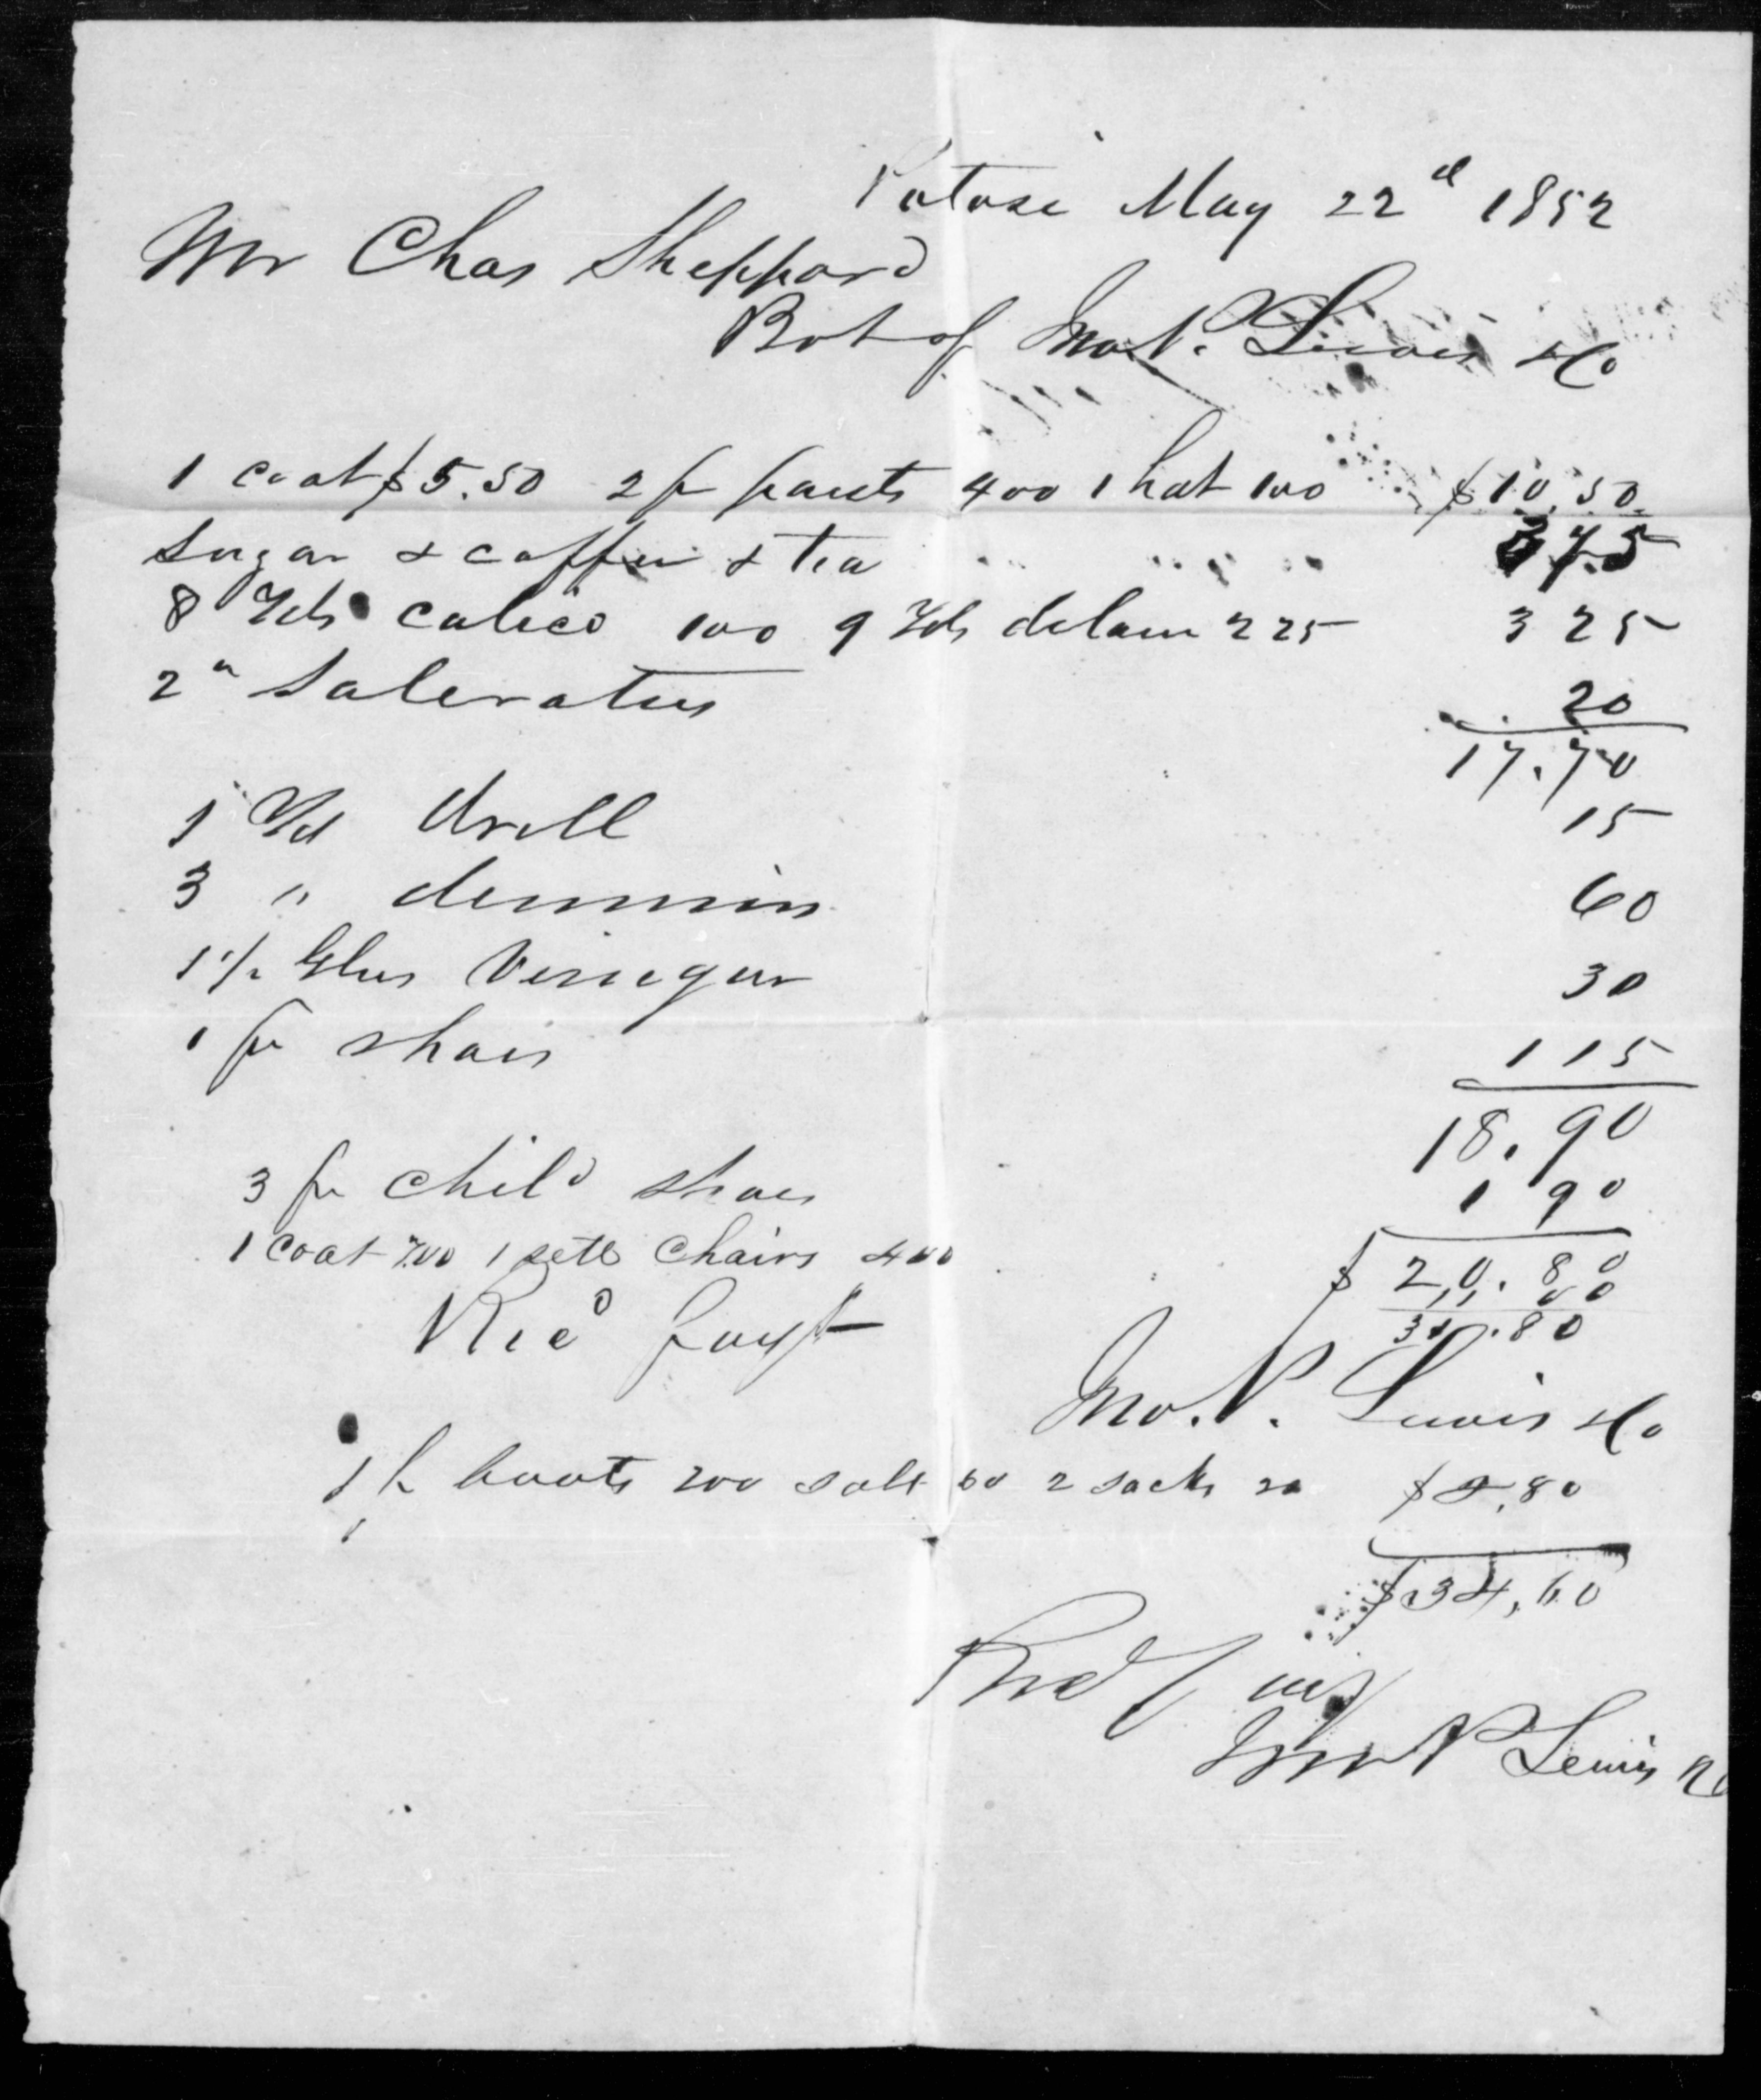 Potosi May 22d 1852
Mr Chas Sheppard
Bot of Jno P. Lewis & Co
1 coat $5.50 2 pr pants 400 1 hat 100 $10.50
Sugar & coffee & tea 375
8 Yds calico 100 9 Yds delain 225 325
2 " Saleratus 20
17.70
1 Yd drill 15
3 " demmin 60
1 1/2 Glns Vinegar 30
1 pr shoes 115
18.90
3 pr child shoes 190
1 coat 7.00 1 sett Chairs 400 $20.80
Recd payt 31.80
Jno. P. Lewis & Co
1 pr boots 200 salt 60 2 sacks 20 $2.80
$34,60
Recd
Jno P Lewis & Co